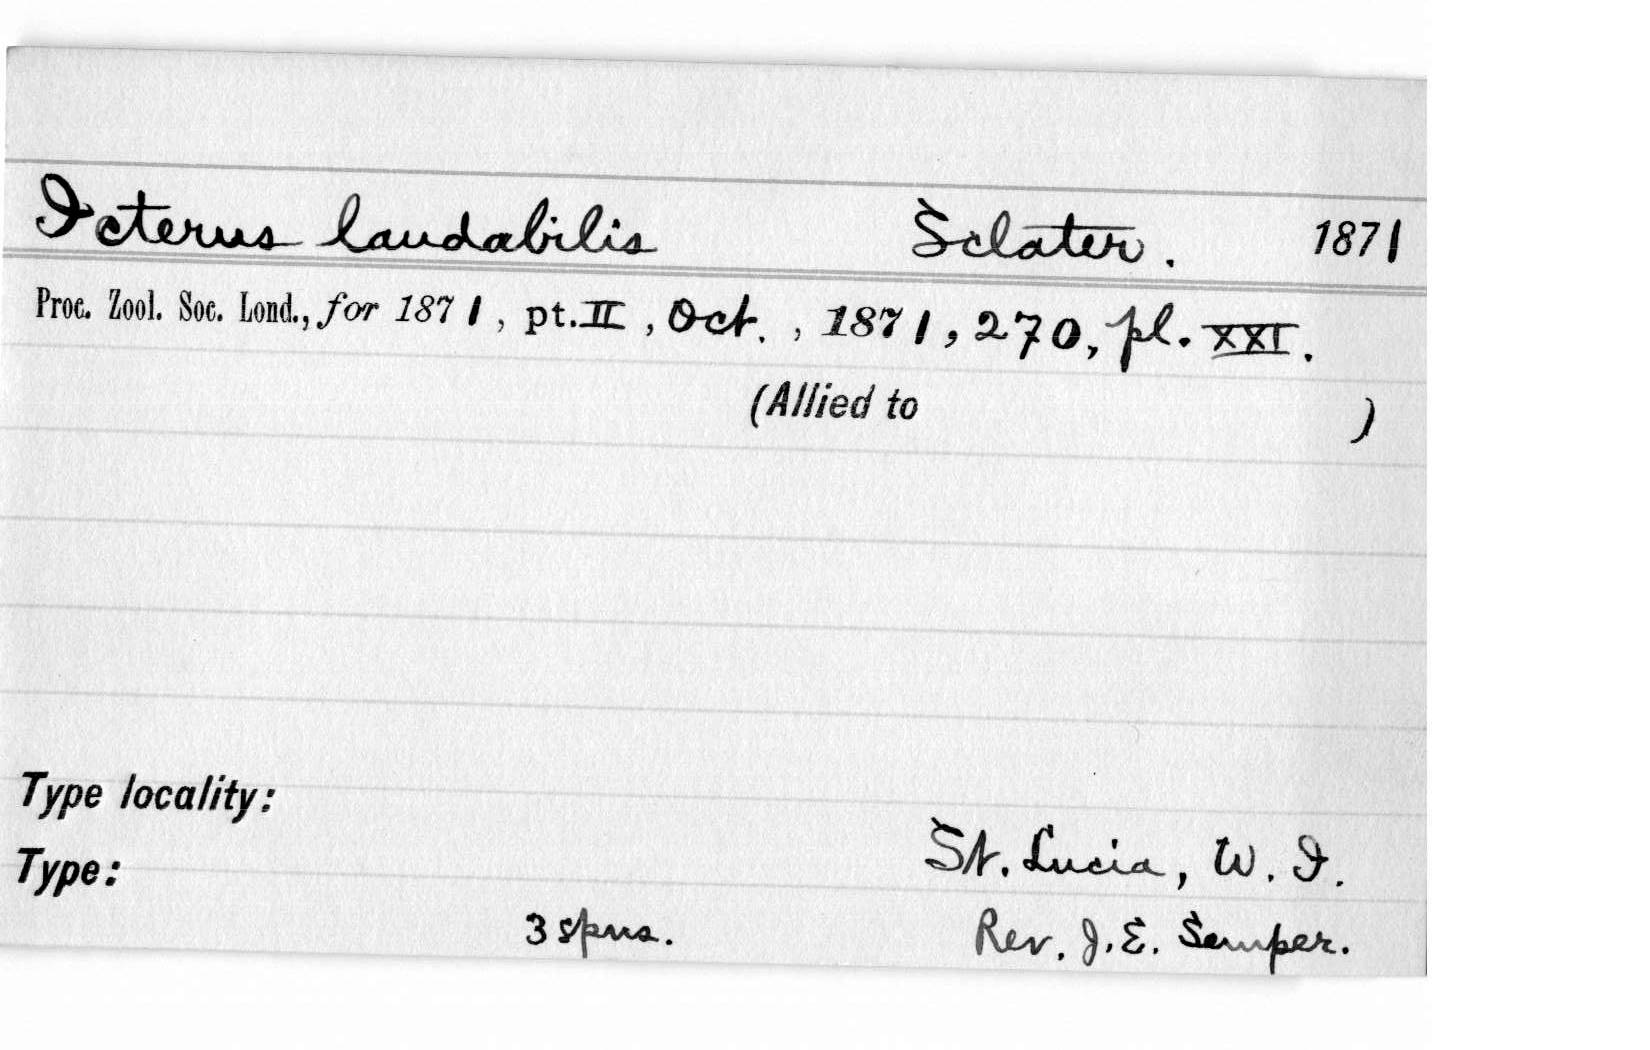 Icterus laudabilis Sclater. 1871
Proc. Zool. Soc. Lond., for 1871, pt. II, Oct., 1871, 270, pl. XXI.
(Allied to )
Type locality:
St. Lucia, W. I.
Type:
3 spns. Rev. J. E. Semper.